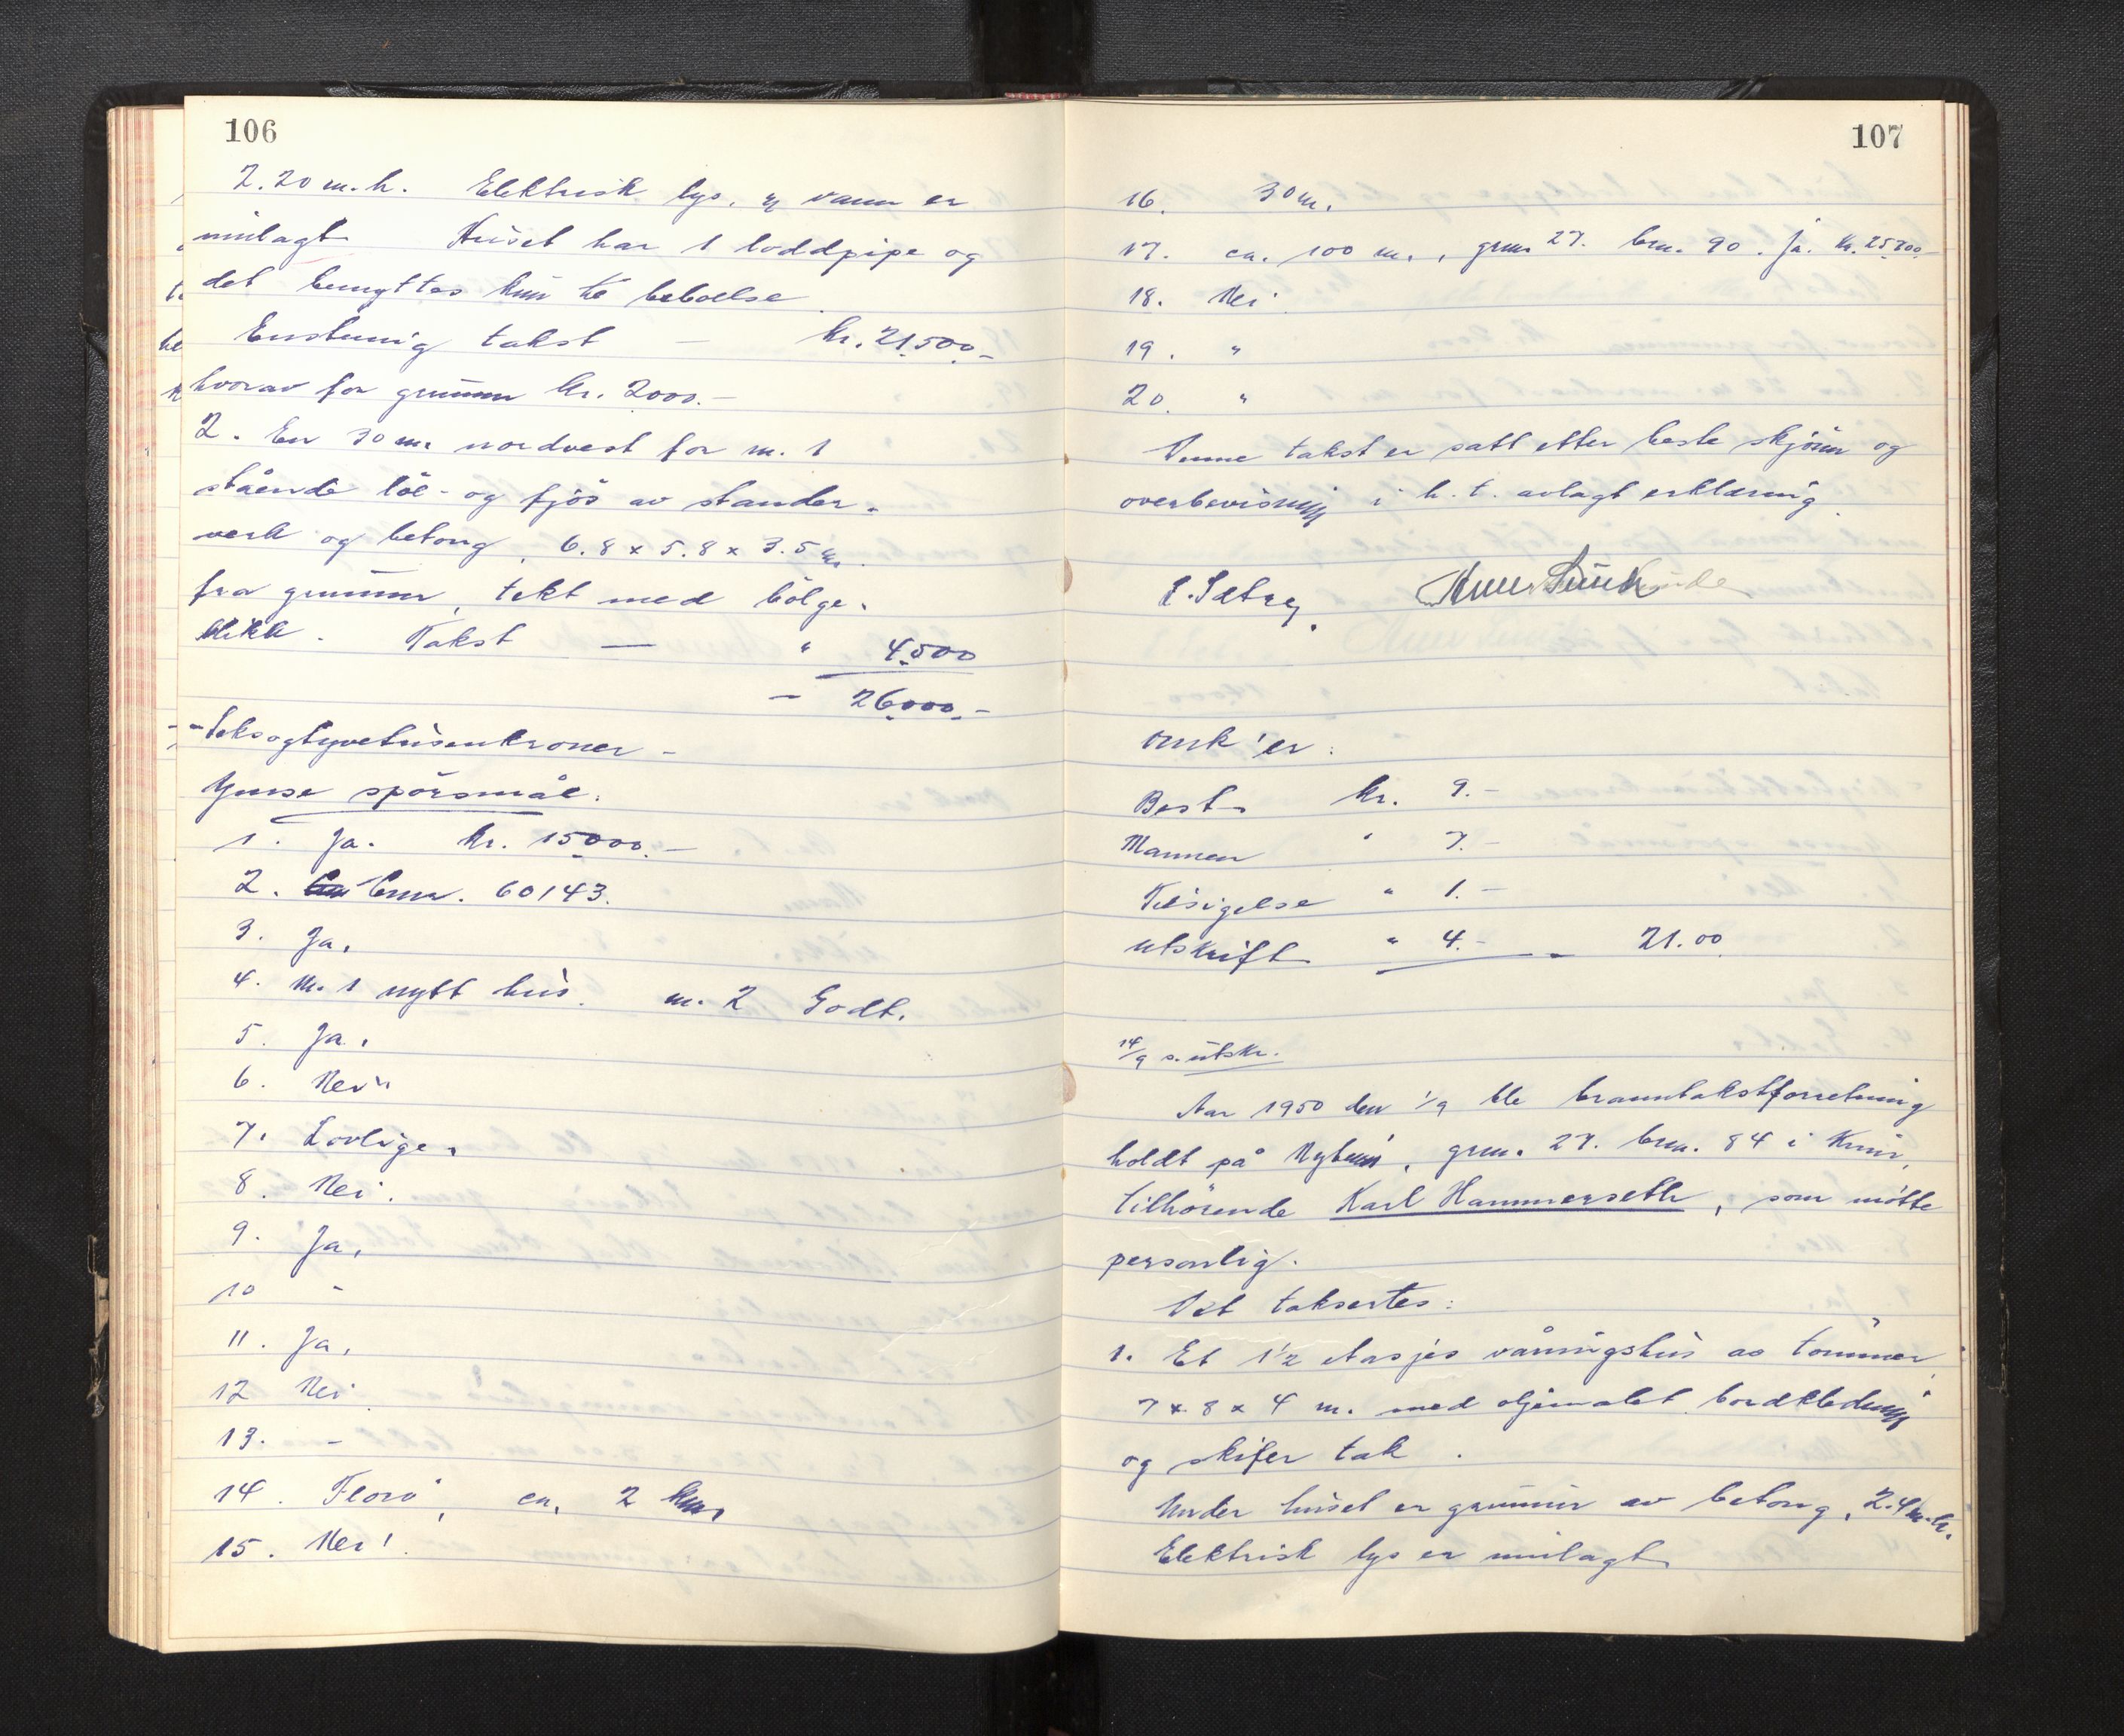 106
2.20 m.h. Elektrisk lys, og vann er
innlagt Huset har 1 loddpipe og
det benyttes kun til beboelse.
Enstemig takst — kr. 21500.-
hvorav for grunnen kr. 2000.-
2. En 30 m. nordvest for m. 1
stående löe- og fjös av stander-
verk og betong, 6.8 x 5.8 x 3.5 m.
fra grunnen, tekt med bölge-
blikk. Takst — " 4500
- 26000.-
- Seksogtyvetusenkroner -
Ymse spörsmål.
1. Ja. kr. 15000.-
2. bnr. 60143.
3. Ja.
4. m. 1 nytt hus. m. 2 Godt.
5. Ja.
6. Nei
7. Lovlige.
8. Nei.
9. Ja.
10 -
11. Ja.
12 Nei
13. -
14. Florö, ca. 2 km.
15. Nei.
107
16. 30 m.
17. ca. 100 m., gnr. 27. bnr. 90. Ja. kr. 25200.-
18. Nei.
19. "
20. "
Denne takst er satt etter beste skjönn og
overbevisning i h.t. avlagt erklæring.
E. Sætrey.
Omk'er:
Best. kr. 9.-
Mannen " 7.-
Tilsigelse " 1.-
Utskrift " 4.- - 21.00
14/9 s. utskr.
Aar 1950 den 1/9 ble branntakstforretning
holdt på, gnr. 27. bnr. 84 i Kinn,
tilhörende Karl Hammerseth, som mötte
personlig.
Det takseres:
1. Et 1½ etasjes våningshus av tömmer,
7 x 8 x 4 m. med oljemalet bordkledning
og skifer tak.
Under huset er grunnmur av betong, 2.4 m.h.
Elektrisk lys er innlagt